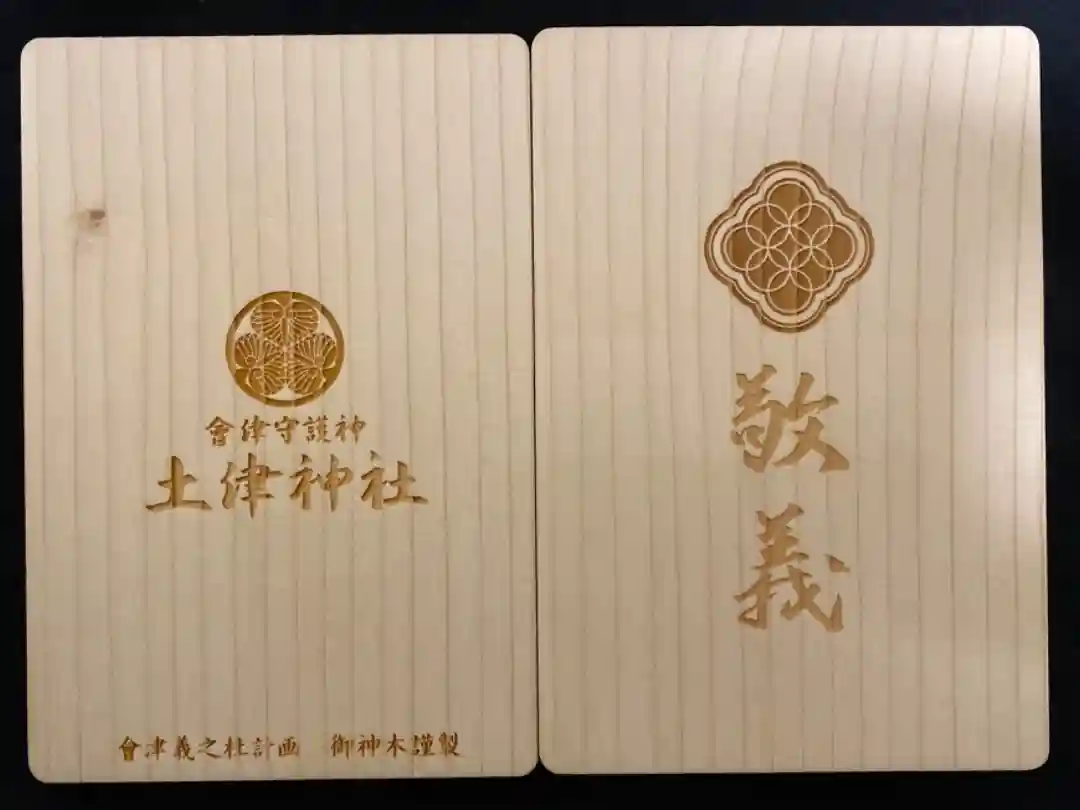 會津守護神
土津神社
會津義之杜計画 御神木謹製
敬義